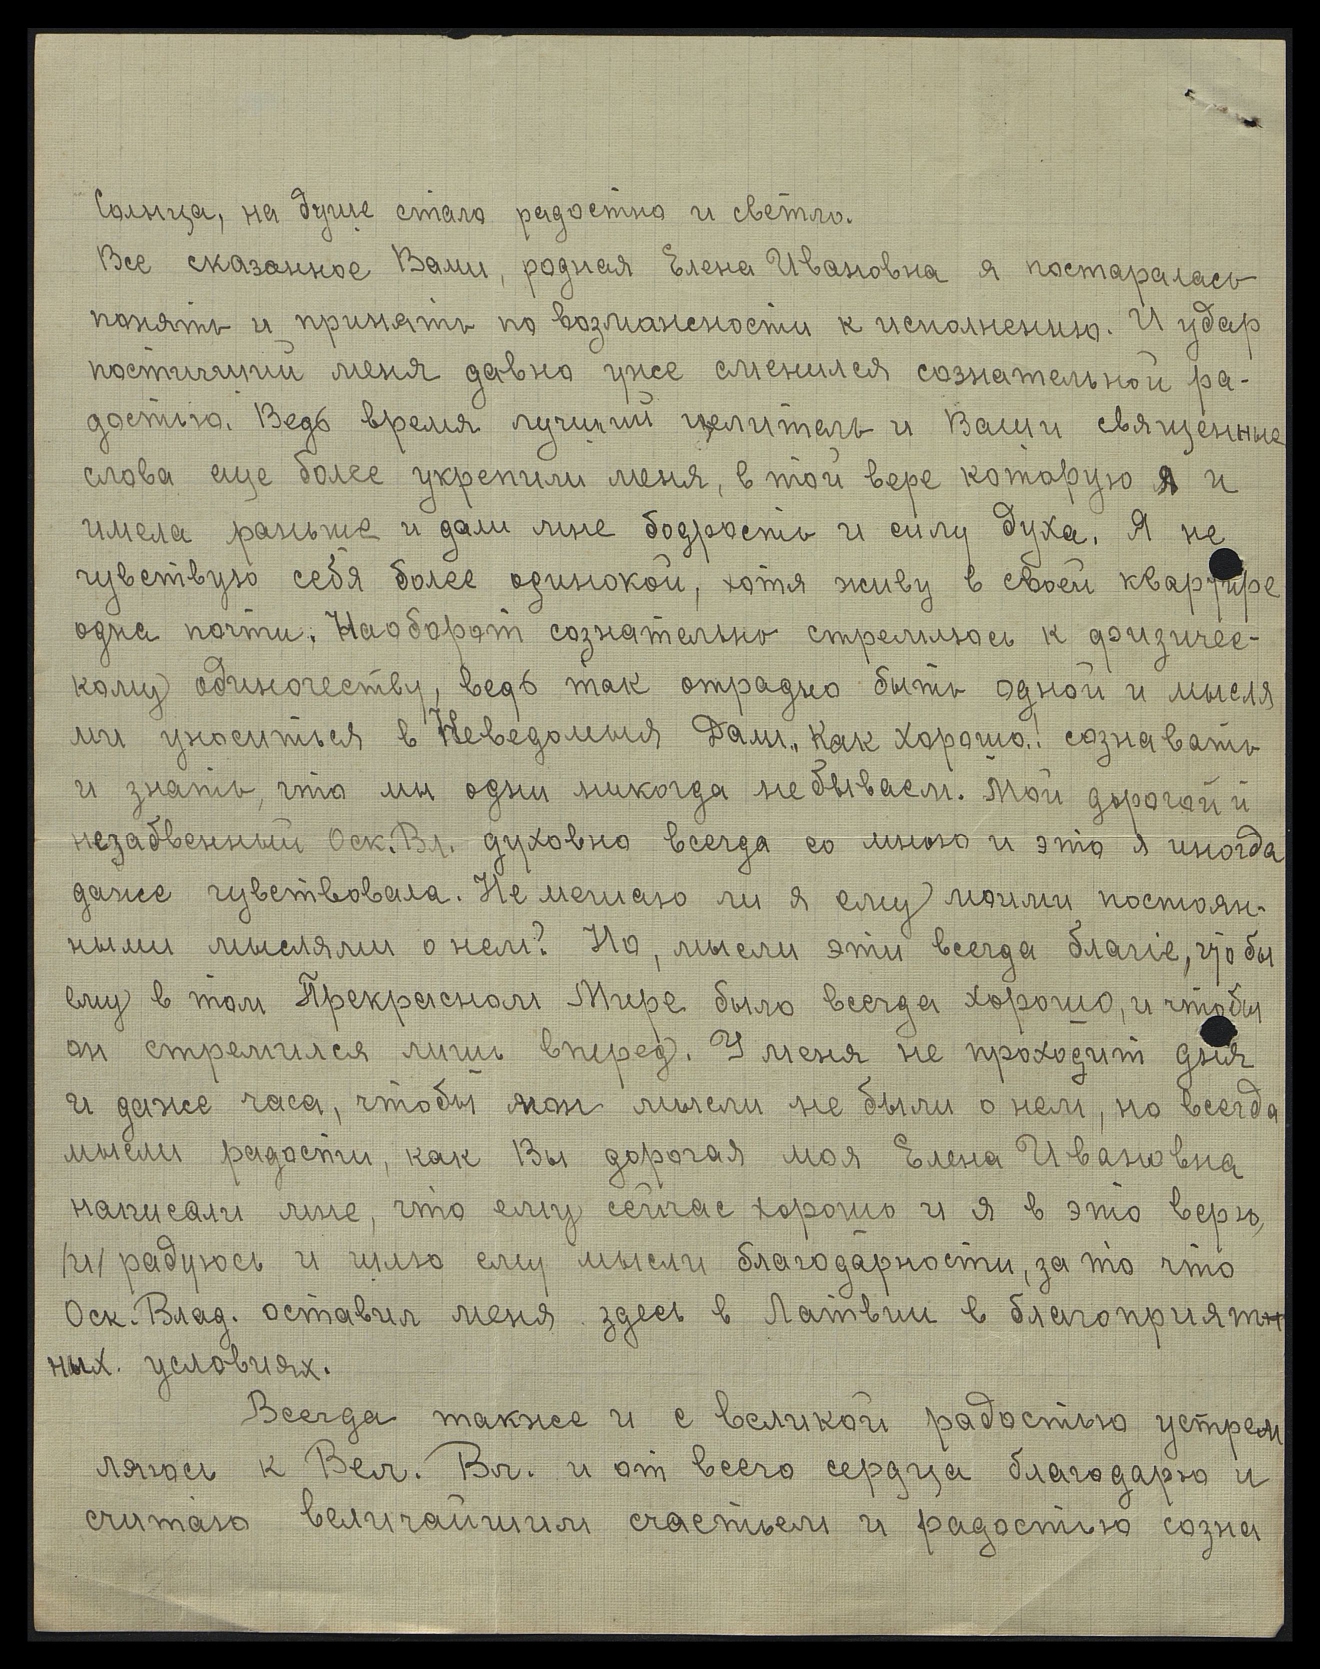 Солнца, на душе стало радостно и светло.
Все сказанное Вами, родная Елена Ивановна я постаралась
понять и принять по возможности к исполнению. И удар
постигший меня давно уже сменился сознательной ра-
достью. Ведь время лучший целитель и Ваши священные
слова еще более укрепили меня, в той вере которую я и
имела раньше и дали мне бодрость и силу духа. Я не
чувствую себя более одинокой, хотя живу в своей квартире
одна почти. Наоборот сознательно стремлюсь к физичес-
кому одиночеству, ведь так отрадно быть одной и мысля
ми уноситься в Неведомыя Дали. Как хорошо! сознавать
и знать, что мы одни никогда не бываем. Мой дорогой и
незабвенный Оск. Вл. духовно всегда со мною и это я иногда
даже чувствовала. Не мешаю ли я ему моими постоян-
ными мыслями о нем? Но, мысли эти всегда благіе, чтобы
ему в том Прекрасном Мире было всегда хорошо, и чтобы
он стремился лишь вперед. У меня не проходит дня
и даже часа, чтобы мои мысли не были о нем, но всегда
мысли радости, как Вы дорогая моя Елена Ивановна
написали мне, что ему сейчас хорошо и я в это верю,
/и/ радуюсь и шлю ему мысли благодарности, за то что
Оск. Влад. оставил меня здесь в Латвии в благоприятн
ных. условиях.
Всегда также и с великой радостью устрем
ляюсь к Вел. Вл. и от всего сердца благодарю и
считаю величайшим счастьем и радостью созна